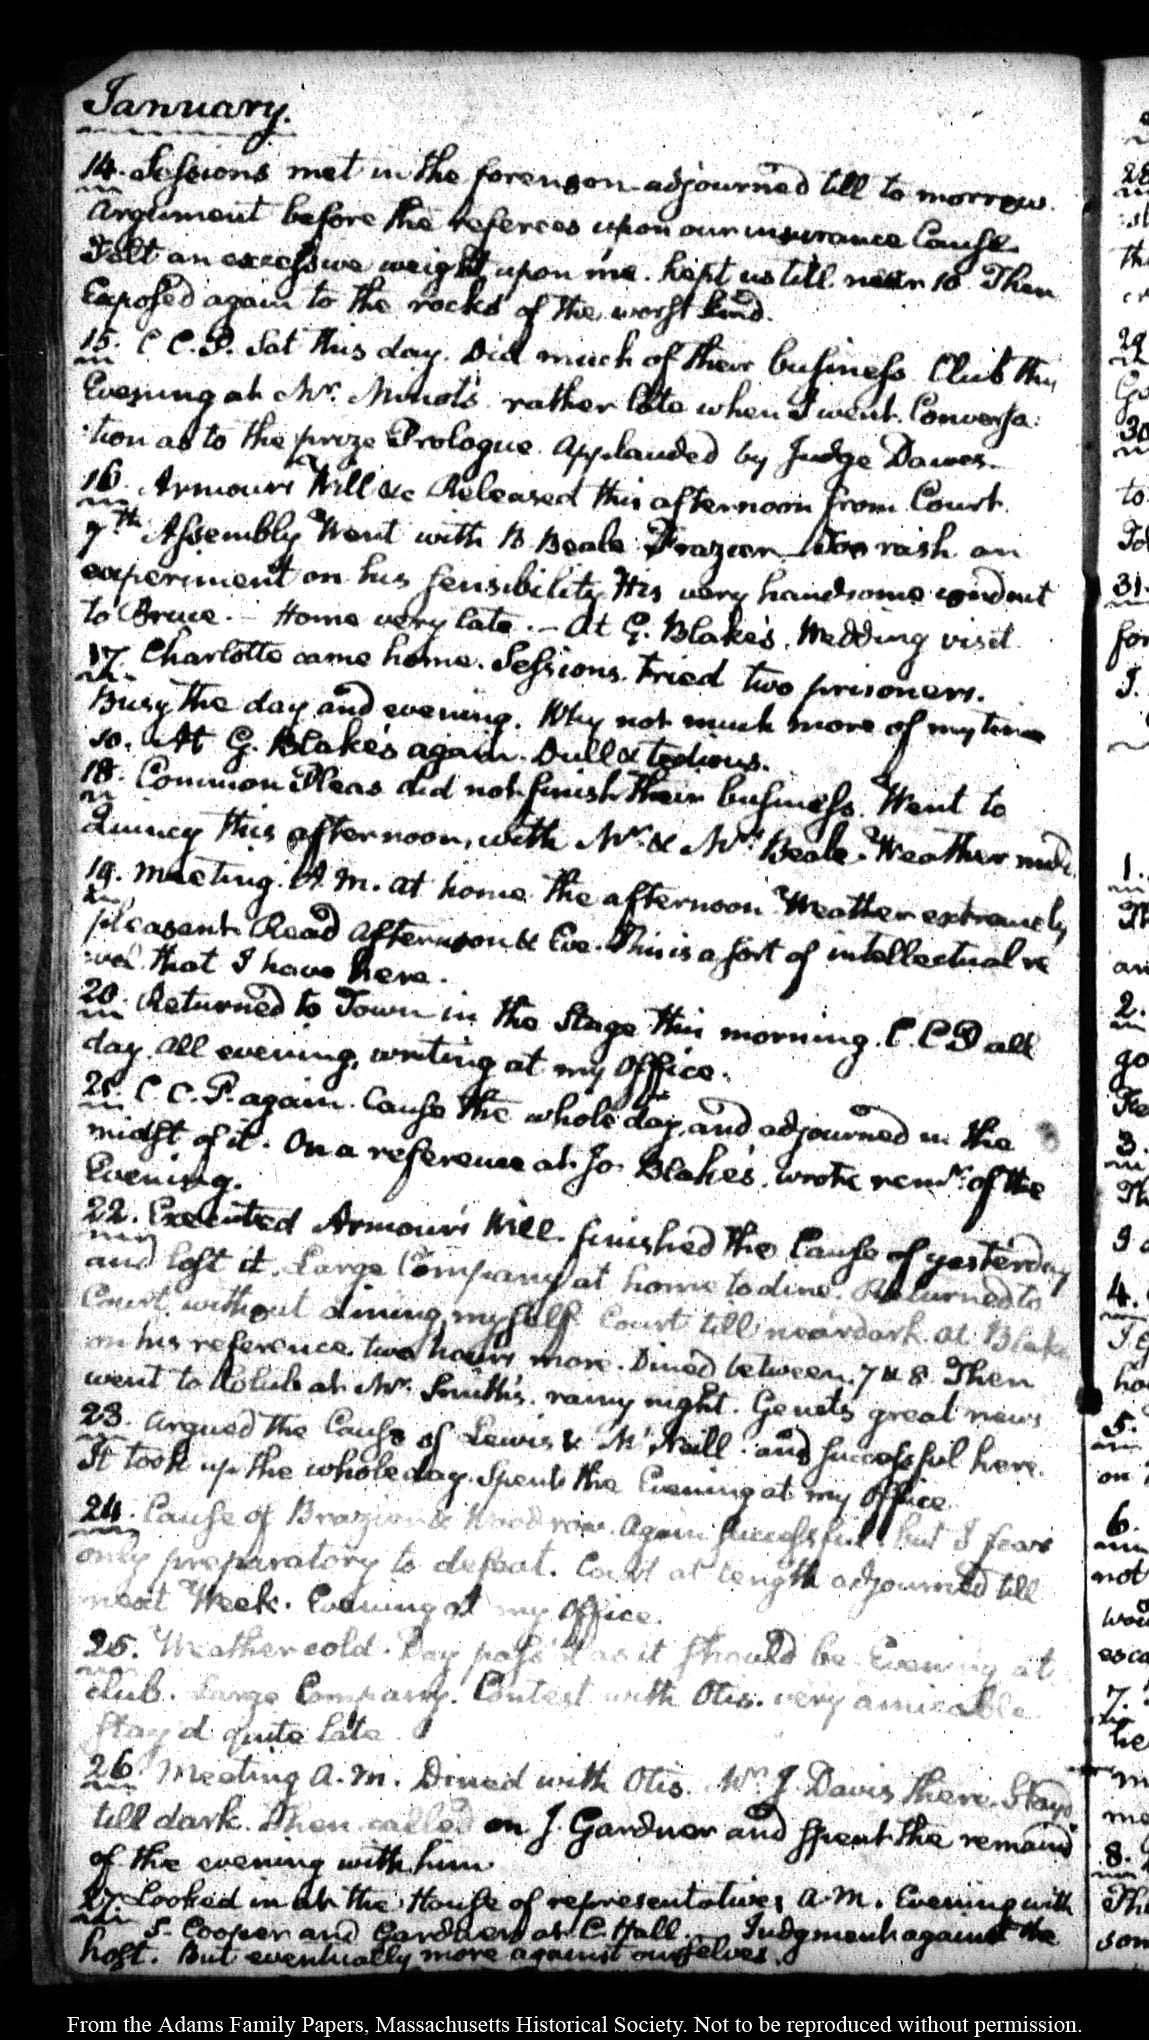 January.
14. Sessions met in the forenoon adjourned till to morrow.
Argument before the referees upon our insurance Cause.
Felt an excessive weight upon me. kept us till near 10. Then
Exposed again to the rocks of the worst kind.
15. C.C.P. Sat this day. Did much of their business. Club this
Evening at Mr. Minot's. rather late when I went. Conversa:
:tion as to the prize Prologue. Applauded by Judge Dawes.
16. Armour's Will &c. Released this afternoon from Court.
7th. Assembly. Went with B. Beale. Frazier. Too rash an
experiment on his sensibility. His very handsome conduct
to Bruce. — Home very late. — At G. Blake's. Wedding visit.
17. Charlotte came home. Sessions. Tried two prisoners.
Busy the day and evening. Why not much more of my time
so. At G. Blake's again. Dull & tedious.
18. Common Pleas did not finish their business. Went to
Quincy this afternoon, with Mr. & Mrs. Beale. Weather mild.
19. Meeting A.M. at home the afternoon. Weather extremely
pleasant. Read afternoon & Eve. This is a sort of intellectual re
:vel that I have here.
20. Returned to Town in the Stage this morning. C.C.P. all
day. All evening, writing at my Office.
21. C.C.P. again. Cause the whole day, and adjourned in the
midst of it. On a reference at Jo. Blake's. wrote remr. of the
Evening.
22. Executed Armour's Will. finished the Cause of yesterday
and lost it. Large Company at home to dine. Returned to
Court, without dining myself. Court till near dark. At Blake
on his reference two hours more. Dined between 7 & 8. Then
went to Club at Mr. Smith's. rainy night. Genet's great news
23. Argued the Cause of Lewis & McNeill. and successful here.
It took up the whole day. Spent the Evening at my Office.
24. Cause of Brazier & Woodrow. Again successful, but I fear
only preparatory to defeat. Court at length adjourned till
next Week. Evening at my Office.
25. Weather cold. Day pass'd as it should be. Evening at
club. Large Company. Contest with Otis. very amicable
Stay'd quite late.
26. Meeting A.M. Dined with Otis. J. Davis there. Stayd
till dark. Then called on J. Gardner and spent the remaind
of the evening with him.
27. Looked in at the House of representatives A.M. Evening with
S. Cooper and Gardner at C. Hall. Judgment against the
host. But eventually more against ourselves.
From the Adams Family Papers, Massachusetts Historical Society. Not to be reproduced without permission.